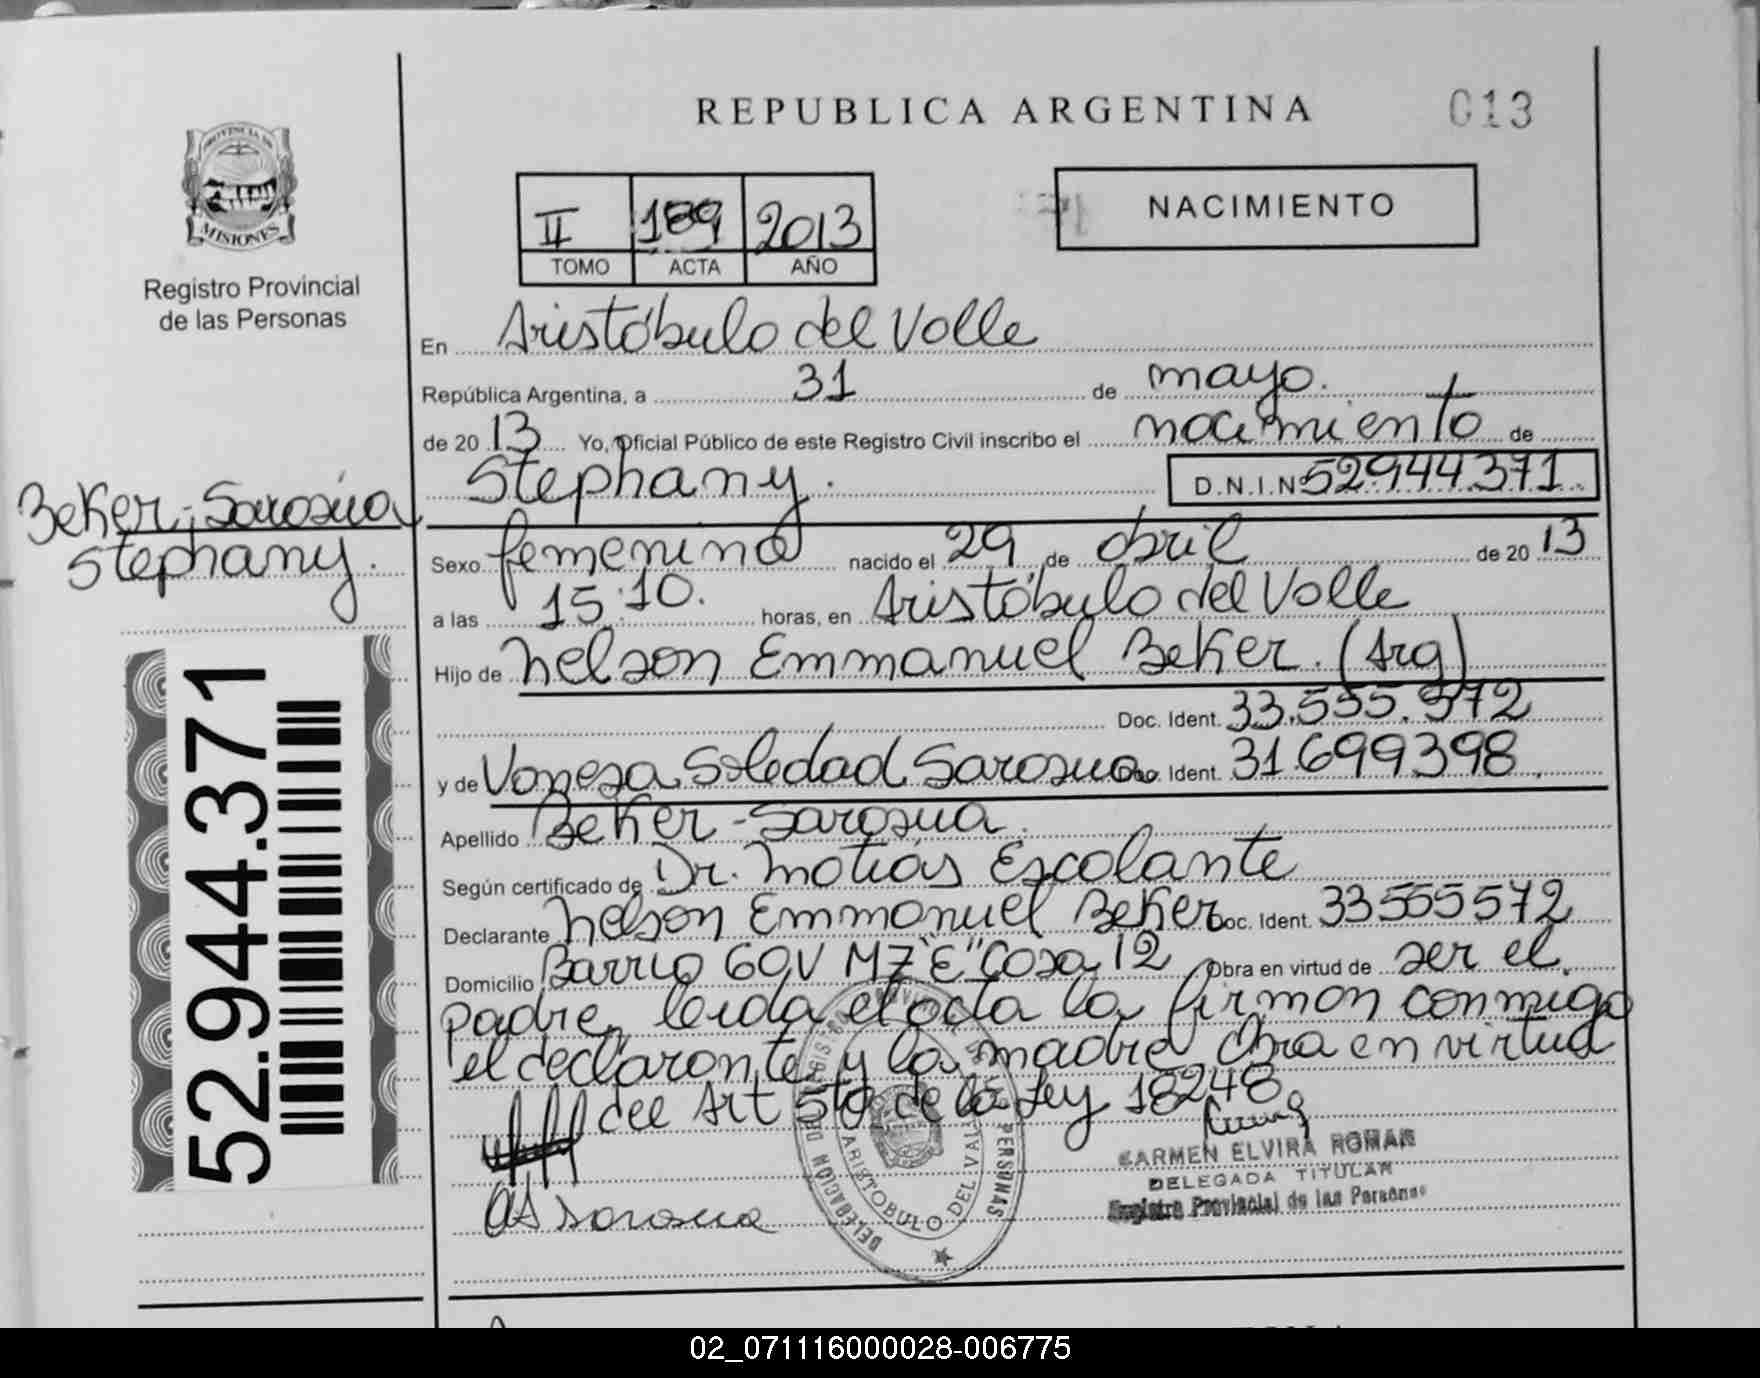 REPUBLICA ARGENTINA
013
PROVINCIA DE
MISIONES
Registro Provincial
de las Personas
II 189 2013
TOMO ACTA AÑO
NACIMIENTO
En Aristóbulo del Valle
República Argentina, a 31 de mayo.
de 20 13 Yo, Oficial Público de este Registro Civil inscribo el nacimiento de
Stephany. D.N.I.Nº 52.944.371
Beker-Sarasua
Stephany.
Sexo femenino nacido el 29 de abril de 20 13
a las 15:10. horas, en Aristóbulo del Valle
Hijo de Nelson Emmanuel Beker. (Arg)
Doc. Ident. 33.555.572
y de Vanesa Soledad Sarasua Doc. Ident. 31699398
Apellido Beker-Sarasua.
Según certificado de Dr. Matías Escalante
Declarante Nelson Emmanuel Beker Doc. Ident. 33555572
Domicilio Barrio 60V MZ "E" Casa 12 Obra en virtud de ser el
padre, leida el acta la firman conmigo
el declarante y la madre Obra en virtud
del Art 5to de la Ley 18248
52.944.371
CARMEN ELVIRA ROMAN
DELEGADA TITULAR
Registro Provincial de las Personas
DELEGACION DEL REGISTRO PROVINCIAL DE LAS PERSONAS
ARISTOBULO DEL VALLE
Sarasua
02_071116000028-006775